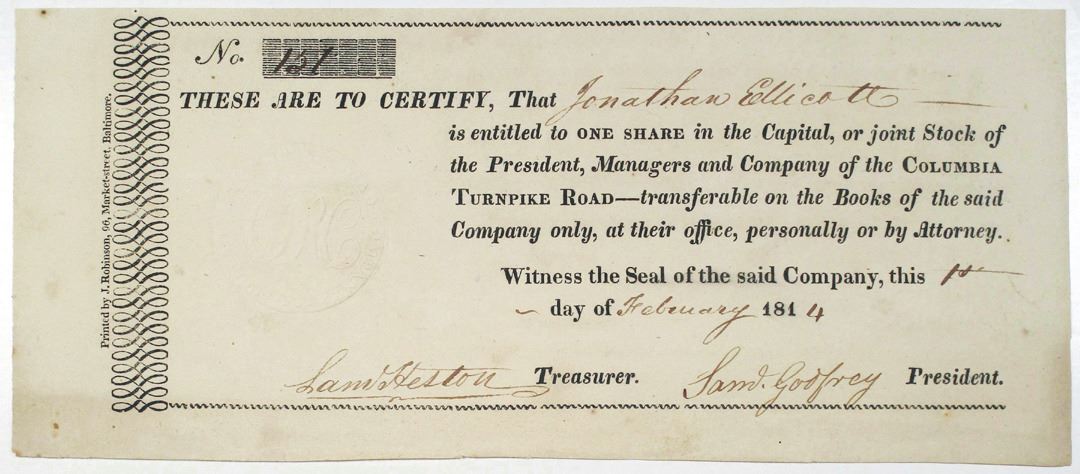 No. 151
THESE ARE TO CERTIFY, That Jonathan Ellicott
is entitled to ONE SHARE in the Capital, or joint Stock of
the President, Managers and Company of the COLUMBIA
TURNPIKE ROAD—transferable on the Books of the said
Company only, at their office, personally or by Attorney.
Witness the Seal of the said Company, this 1st
day of February 1814
Saml Heston Treasurer. Saml. Godfrey President.
Printed by J. Robinson, 96, Market-street, Baltimore.